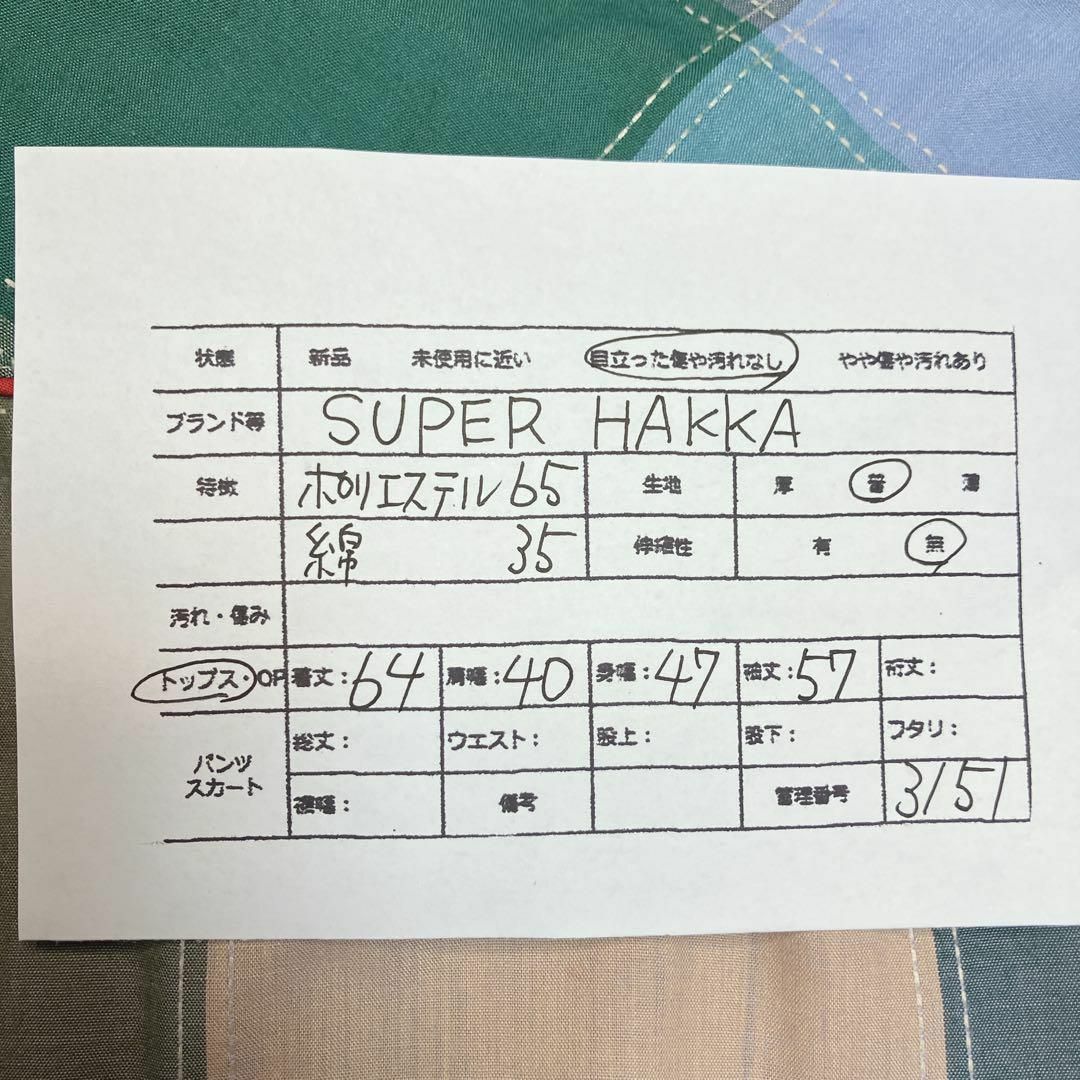 状態 新品 未使用に近い 目立った傷や汚れなし やや傷や汚れあり
ブランド等 SUPER HAKKA
特徴 ポリエステル 65 生地 厚 普 薄
綿 35 伸縮性 有 無
汚れ・傷み
トップス・OP 着丈：64 肩幅：40 身幅：47 袖丈：57 裄丈：
パンツ スカート 総丈： ウエスト： 股上： 股下： ワタリ：
裾幅： 備考 管理番号 3151